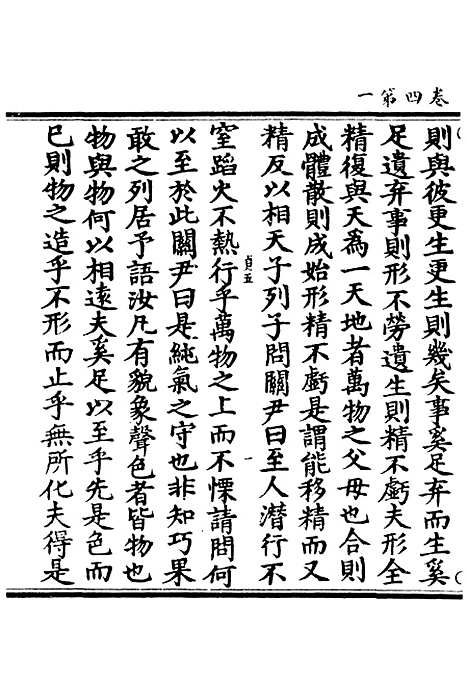 卷四第一
則與彼更生更生則幾矣事奚足弃而生奚
足遺弃事則形不勞遺生則精不虧夫形全
精復與天爲一天地者萬物之父母也合則
成體散則成始形精不虧是謂能移精而又
精反以相天子列子問關尹曰至人潛行不
窒蹈火不熱行乎萬物之上而不慄請問何
以至於此關尹曰是純氣之守也非知巧果
敢之列居予語汝凡有貌象聲色者皆物也
物與物何以相遠夫奚足以至乎先是色而
已則物之造乎不形而止乎無所化夫得是